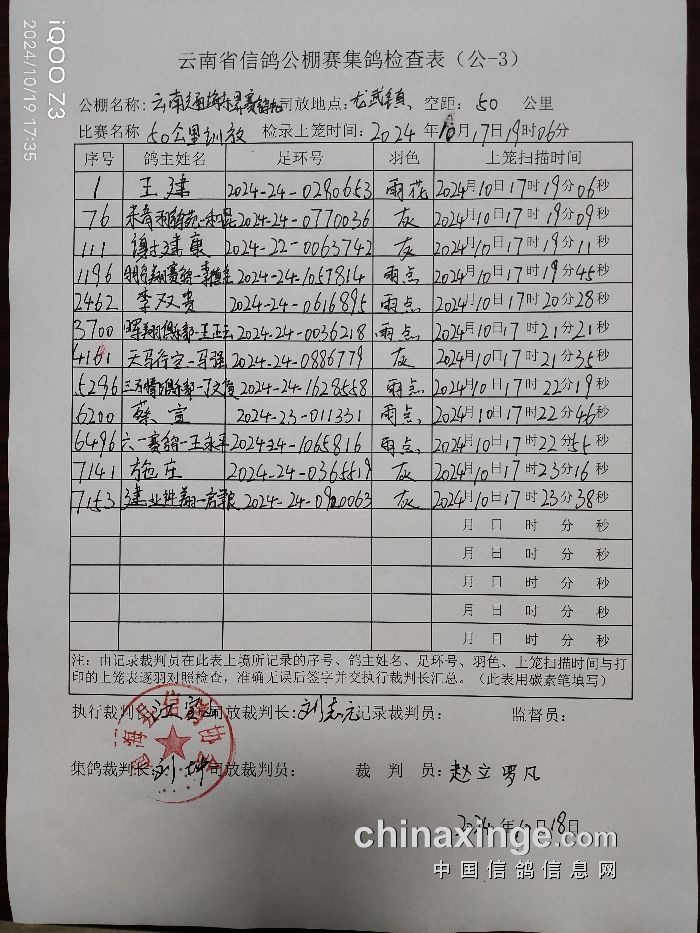 iQOO Z3
2024/10/19 17:35
云南省信鸽公棚赛集鸽检查表（公-3）
公棚名称: 云南 司放地点: 龙武镇 空距: 50 公里
比赛名称 50公里训放 检录上笼时间: 2024年10月17日19时06分
序号 鸽主姓名 足环号 羽色 上笼扫描时间
1 王建 2024-24-0280653 雨花 2024月10日17时19分06秒
76 2024-24-0770036 灰 2024月10日17时19分09秒
111 谢建康 2024-22-0063742 灰 2024月10日17时19分11秒
1196 2024-24-1057814 雨点 2024月10日17时19分45秒
2462 李双贵 2024-24-0616895 雨点 2024月10日17时20分28秒
3700 2024-24-0036218 雨点 2024月10日17时21分21秒
4161 天马行空-马强 2024-24-0886779 灰 2024月10日17时21分35秒
5296 2024-24-1628558 雨点 2024月10日17时22分19秒
6200 蔡宣 2024-23-011331 雨点 2024月10日17时22分46秒
6496 六一赛鸽-王永平 2024-24-1065816 雨点 2024月10日17时22分55秒
7141 2024-24-0365519 灰 2024月10日17时23分16秒
7153 2024-24-0920063 灰 2024月10日17时23分38秒
月 日 时 分 秒
月 日 时 分 秒
月 日 时 分 秒
月 日 时 分 秒
月 日 时 分 秒
注: 由记录裁判员在此表上境所记录的序号、鸽主姓名、足环号、羽色、上笼扫描时间与打
印的上笼表逐羽对照检查，准确无误后签字并交执行裁判长汇总。（此表用碳素笔填写）
执行裁判长: 司放裁判长: 刘志元 记录裁判员: 监督员:
集鸽裁判长: 司放裁判员: 裁 判 员: 赵立 罗凡
2024年10月18日
chinaxinge.com
中国信鸽信息网